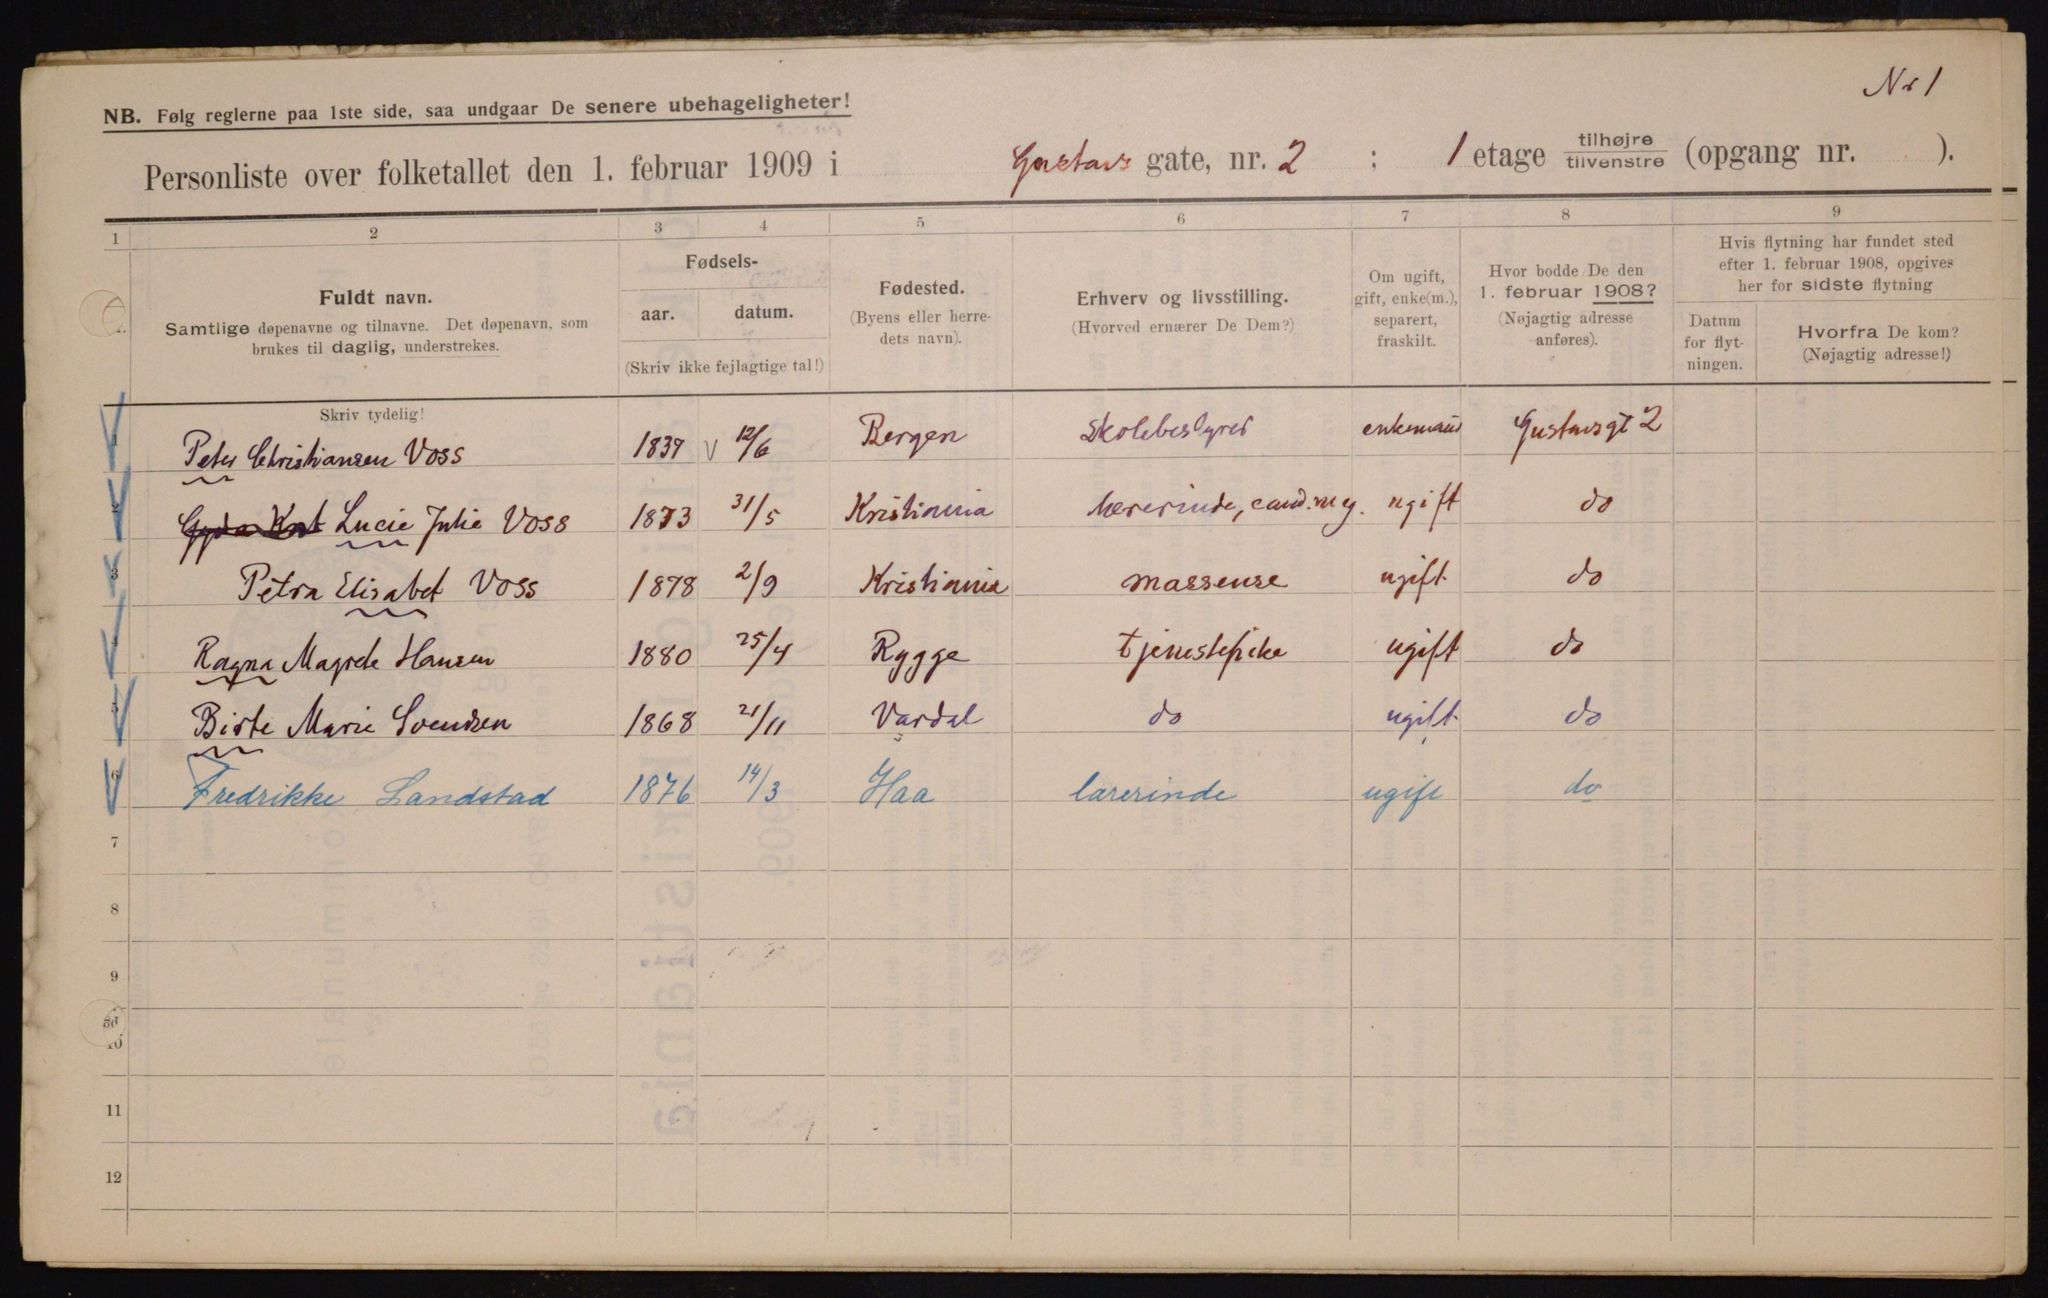 Nr 1
NB. Følg reglerne paa 1ste side, saa undgaar De senere ubehageligheter!
Personliste over folketallet den 1. februar 1909 i Gustavs gate, nr. 2 ; 1 etage tilhøjre tilvenstre (opgang nr. ).
1 2 3 4 5 6 7 8 9
Fuldt navn.
Samtlige døpenavne og tilnavne. Det døpenavn, som
brukes til daglig, understrekes.
Fødsels-
aar. datum.
(Skriv ikke fejlagtige tal!)
Fødested.
(Byens eller herre-
dets navn).
Erhverv og livsstilling.
(Hvorved ernærer De Dem?)
Om ugift,
gift, enke(m.),
separert,
fraskilt.
Hvor bodde De den
1. februar 1908?
(Nøjagtig adresse
anføres).
Hvis flytning har fundet sted
efter 1. februar 1908, opgives
her for sidste flytning
Datum
for flyt-
ningen.
Hvorfra De kom?
(Nøjagtig adresse!)
Skriv tydelig!
1 Peter Christiansen Voss 1839 V 12/6 Bergen Skolebestyrer enkemand Gustavsgt 2
2 Lucie Julie Voss 1873 31/5 Kristiania Lærerinde, cand. mag. ugift do
3 Petra Elisabet Voss 1878 2/9 Kristiania massøse ugift do
4 Ragna Magrete Hansen 1880 25/4 Rygge tjenestepike ugift do
5 Birte Marie Svendsen 1868 21/11 Vardal do ugift do
6 Fredrikke Landstad 1876 14/3 Haa lærerinde ugift do
7
8
9
10
11
12